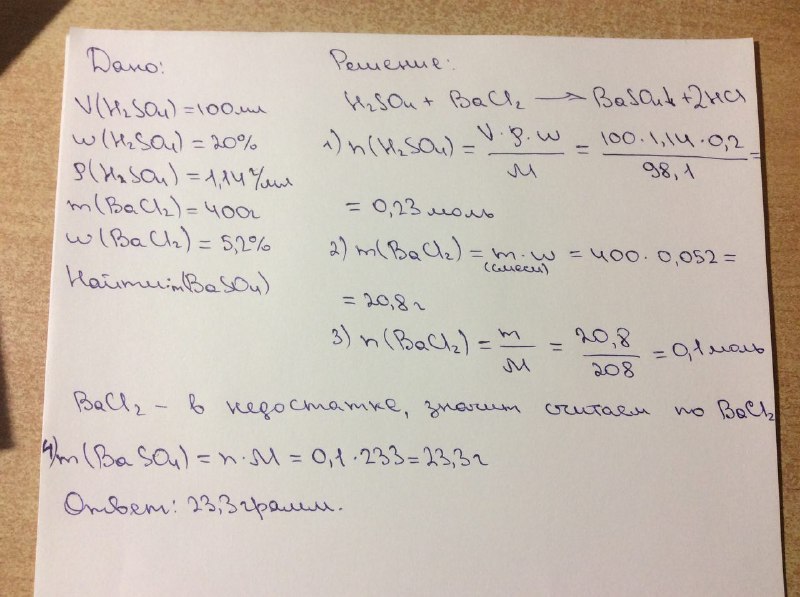 Дано:
V(H₂SO₄) = 100мл
w(H₂SO₄) = 20%
ρ(H₂SO₄) = 1,14 г/мл
m(BaCl₂) = 400г
w(BaCl₂) = 5,2%
Найти: m(BaSO₄)
Решение:
H₂SO₄ + BaCl₂ → BaSO₄↓ + 2HCl
1) n(H₂SO₄) = V·ρ·w / M = 100·1,14·0,2 / 98,1 =
= 0,23 моль
2) m(BaCl₂) = m(смеси)·w = 400·0,052 =
= 20,8 г
3) n(BaCl₂) = m / M = 20,8 / 208 = 0,1 моль
BaCl₂ – в недостатке, значит считаем по BaCl₂
4) m(BaSO₄) = n·M = 0,1·233 = 23,3 г
Ответ: 23,3 грамм.